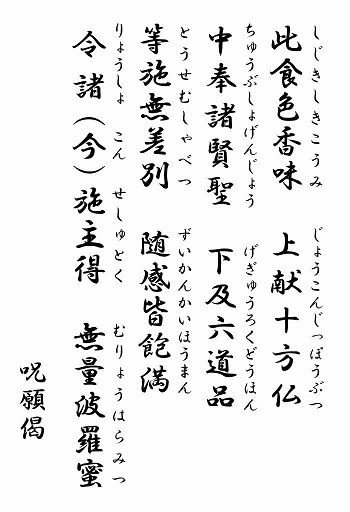 此食色香味　上献十方仏
しじきしきこうみ　じょうこんじっぽうぶつ
中奉諸賢聖　下及六道品
ちゅうぶしょげんじょう　げぎゅうろくどうほん
等施無差別　随感皆飽満
とうせむしゃべつ　ずいかんかいほうまん
令諸（今）施主得　無量波羅蜜
りょうしょ　こん　せしゅとく　むりょうはらみつ
呪願偈